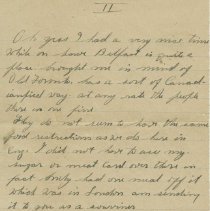 11
Oh yes I had a very nice time
while on leave Belfast is quite a
place. brought me in mind of
Old Toronto. has a sort of Canad-
ianfied way at any rate the people
there is one fine
They do not seem to have the same
food restrictions as we do here in
Eng. I did not have to use my
sugar or meat card over there in
fact only had one meal off it
which was in London am sending
it to you as a souvenir